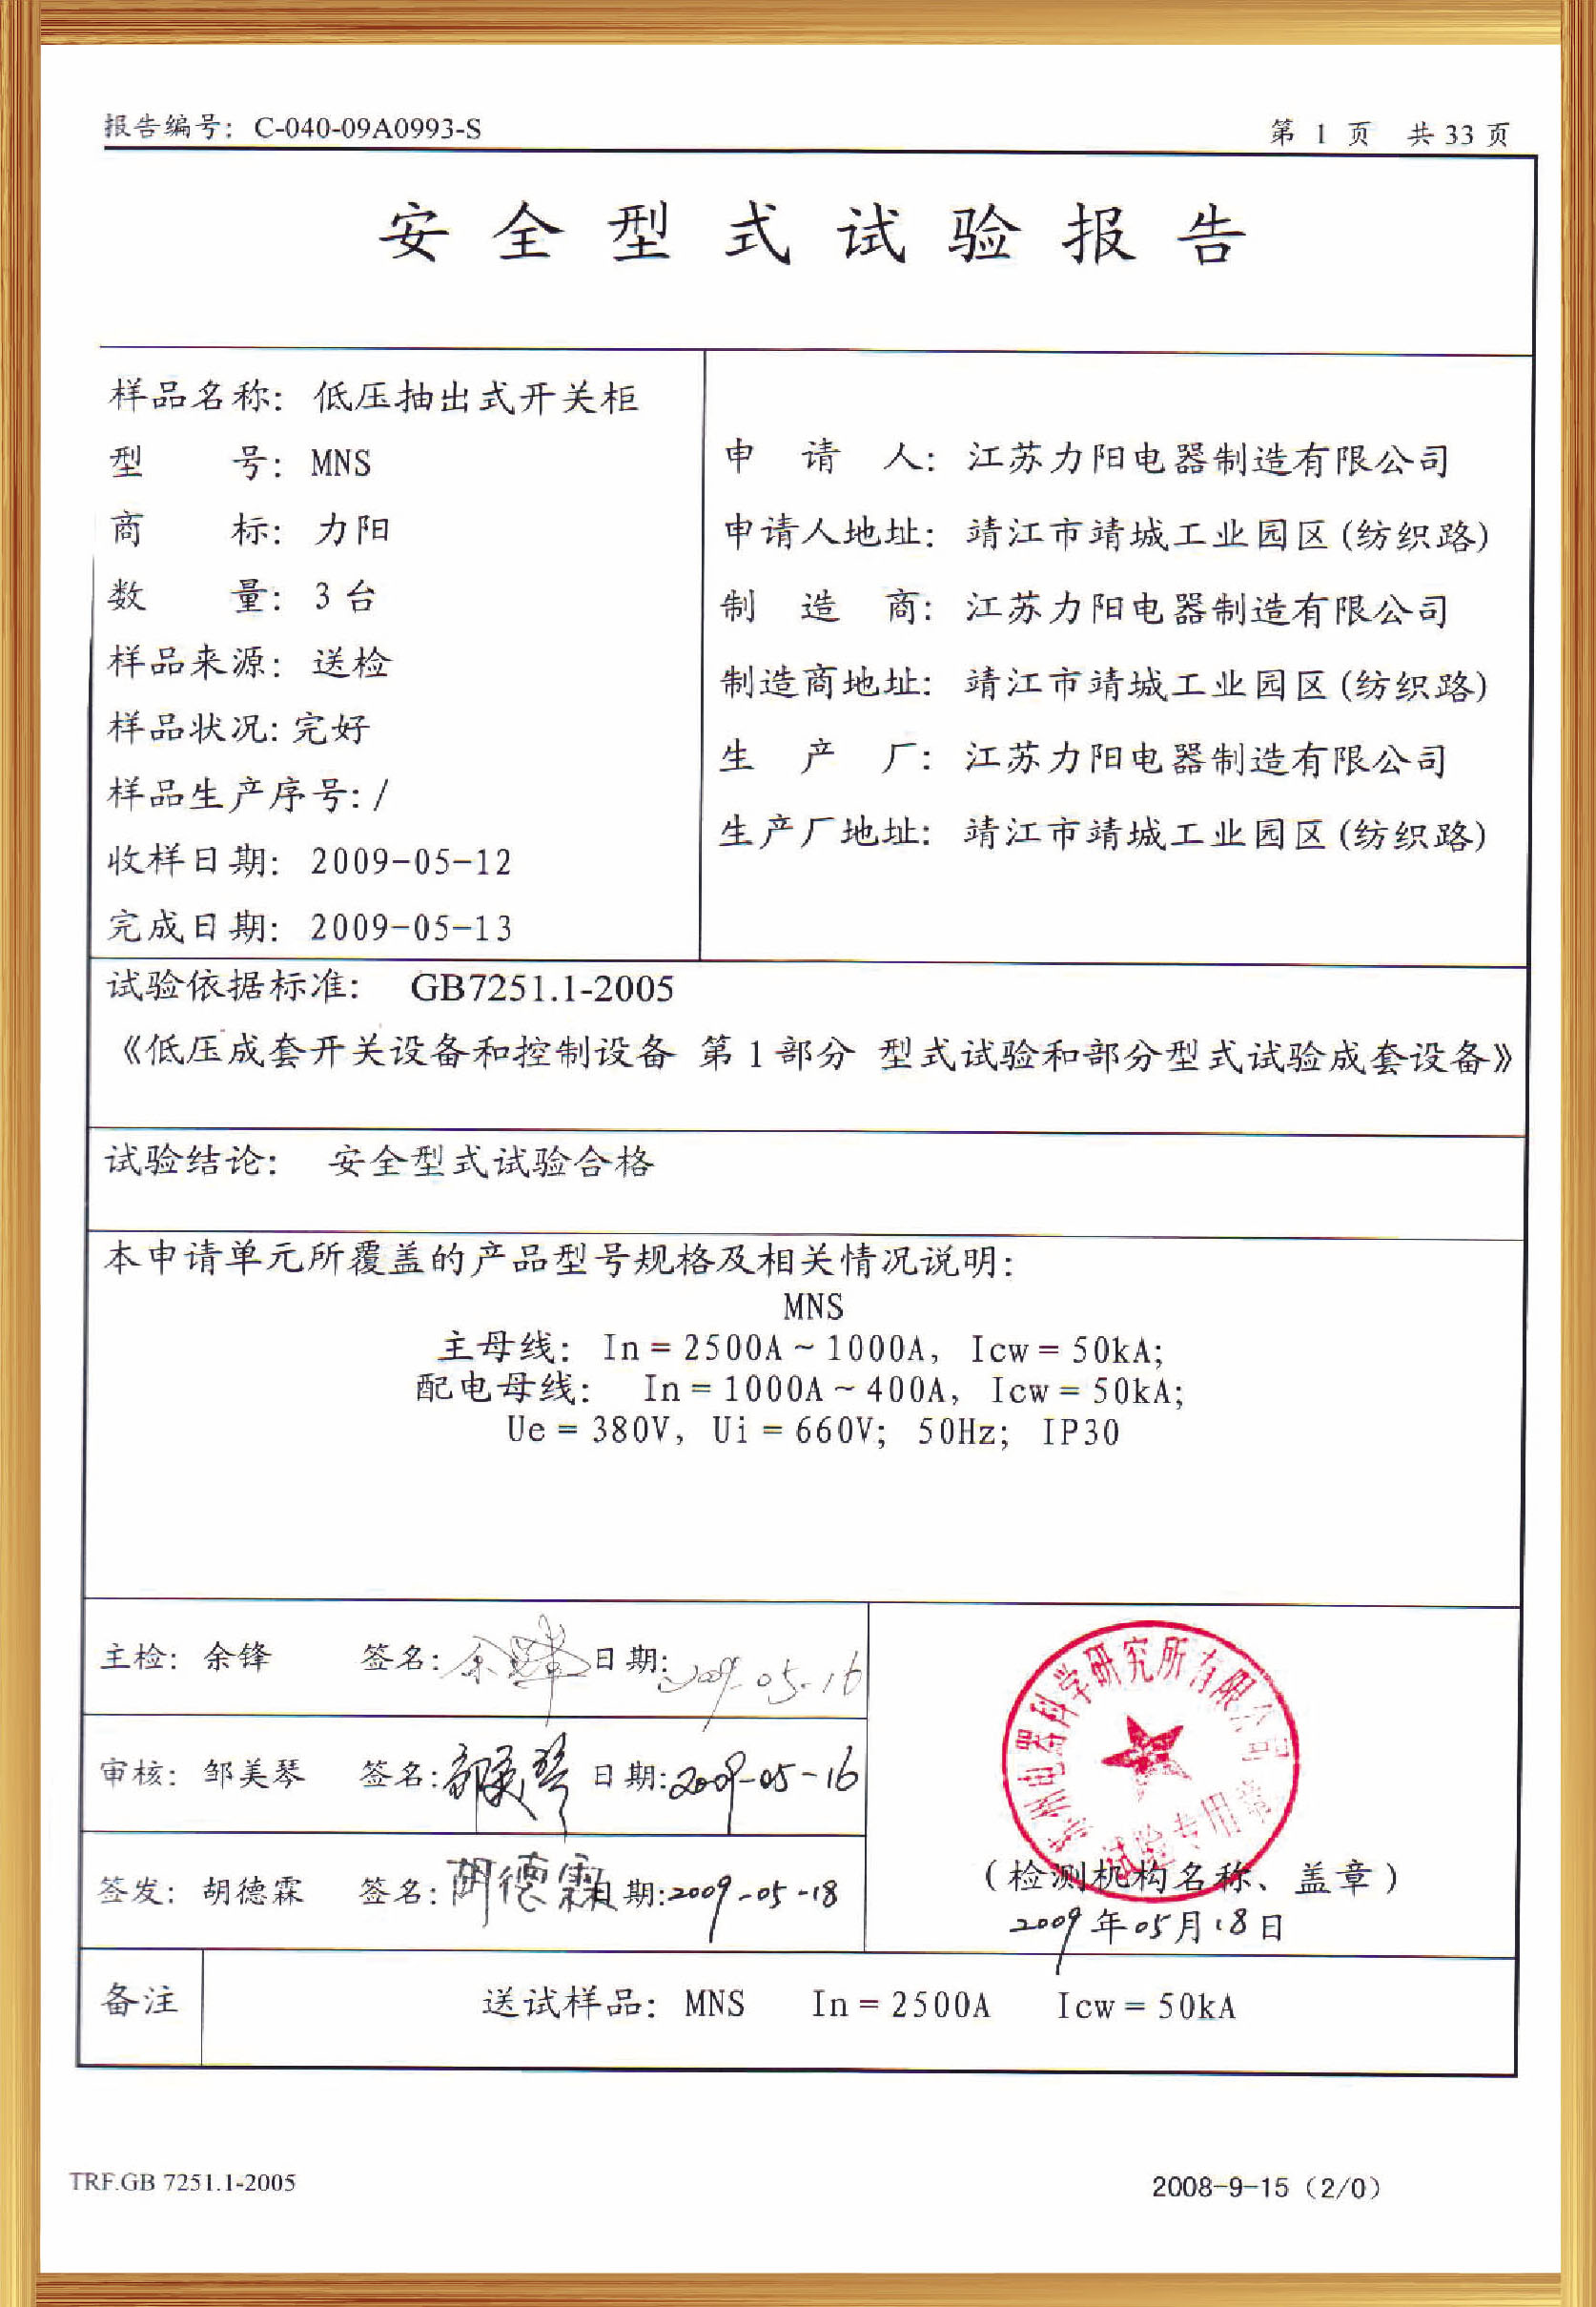 报告编号：C-040-09A0993-S
第 1 页 共 33 页
安全型式试验报告
样品名称：低压抽出式开关柜
型 号：MNS
商 标：力阳
数 量：3 台
样品来源：送检
样品状况：完好
样品生产序号：/
收样日期：2009-05-12
完成日期：2009-05-13
申 请 人：江苏力阳电器制造有限公司
申请人地址：靖江市靖城工业园区(纺织路)
制 造 商：江苏力阳电器制造有限公司
制造商地址：靖江市靖城工业园区(纺织路)
生 产 厂：江苏力阳电器制造有限公司
生产厂地址：靖江市靖城工业园区(纺织路)
试验依据标准： GB7251.1-2005
《低压成套开关设备和控制设备 第1部分 型式试验和部分型式试验成套设备》
试验结论： 安全型式试验合格
本申请单元所覆盖的产品型号规格及相关情况说明：
MNS
主母线： In = 2500A ~ 1000A, Icw = 50kA;
配电母线： In = 1000A ~ 400A, Icw = 50kA;
Ue = 380V, Ui = 660V; 50Hz; IP30
主检：余锋 签名：余锋 日期：2009-05-16
审核：邹美琴 签名：邹美琴 日期：2009-05-16
签发：胡德霖 签名：胡德霖 日期：2009-05-18
苏州电器科学研究所有限公司
试验专用章
（检测机构名称、盖章）
2009年05月18日
备注 送试样品：MNS In = 2500A Icw = 50kA
TRF.GB 7251.1-2005
2008-9-15（2/0）